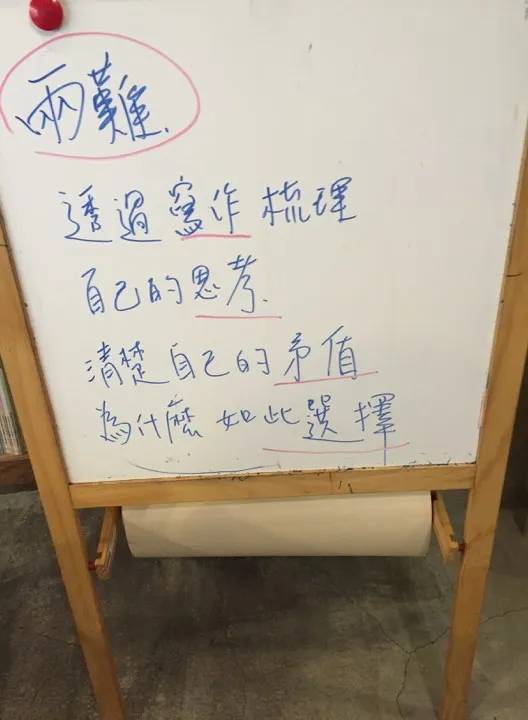 兩難
透過寫作梳理
自己的思考
清楚自己的矛值
為什麼如此選擇